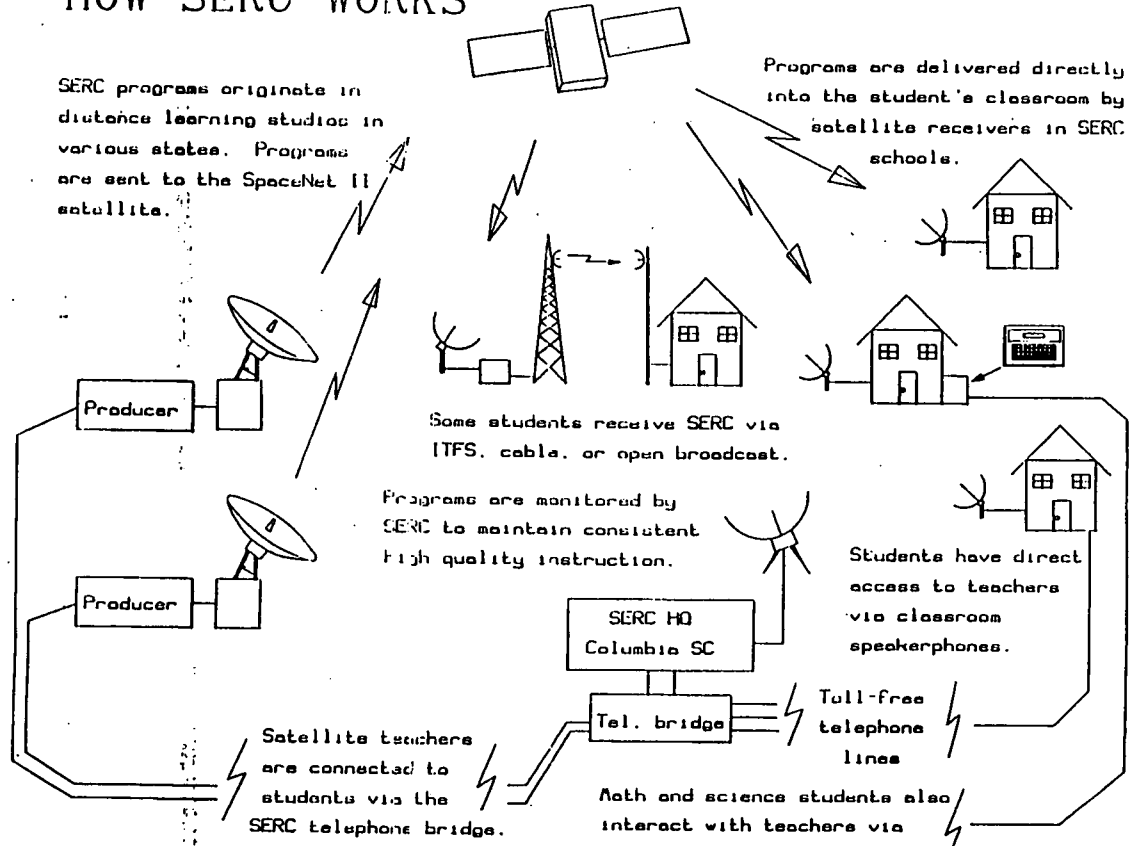 HOW SERC WORKS
SERC programs originate in
distance learning studios in
various states. Programs
are sent to the SpaceNet II
satellite.
Programs are delivered directly
into the student's classroom by
satellite receivers in SERC
schools.
Some students receive SERC via
ITFS, cable, or open broadcast.
Producer
Programs are monitored by
SERC to maintain consistent
high quality instruction.
Producer
SERC HQ
Columbia SC
Tel. bridge
Students have direct
access to teachers
via classroom
speakerphones.
Toll-free
telephone
lines
Satellite teachers
are connected to
students via the
SERC telephone bridge.
Math and science students also
interact with teachers via